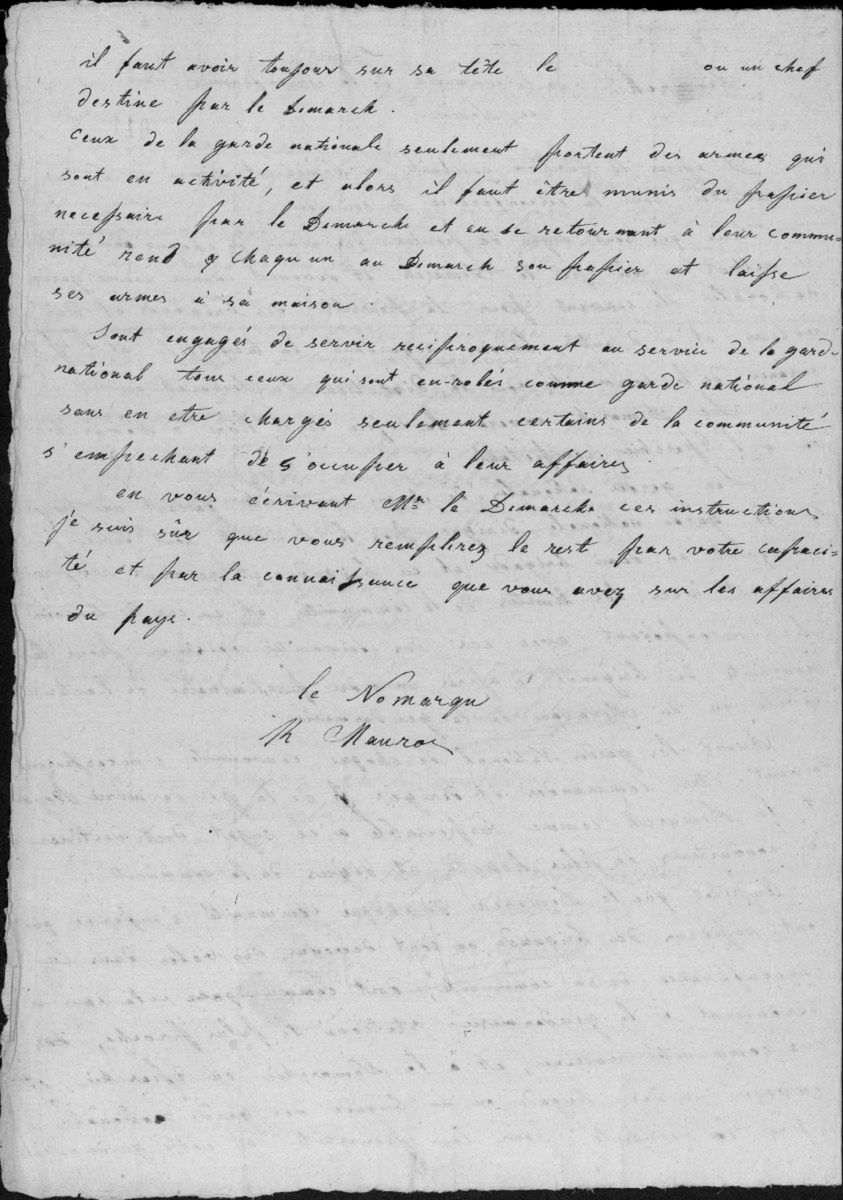 il faut avoir toujour sur sa tête le ou un chef
destine par le Demarch.
ceux de la garde nationale seulement portent des armes qui
sont en activité, et alors il faut être munis du papier
necessaire par le Demarche et au se retournant à leur commu-
nité rend chaqu un au Demarch son papier et laisse
ses armes à sa maison.
Sont engagés de servir reciproquement au service de la garde
national tous ceux qui sont en-rolés comme garde national
sans en etre chargés seulement certains de la communité
s'empechant de s'occuper à leur affaires
en vous écrivant Mr le Demarche ces instructions
je suis sûr que vous remplirez le rest par votre capaci-
té et par la connaissance que vous avez sur les affaires
du pays.
le Nomarque